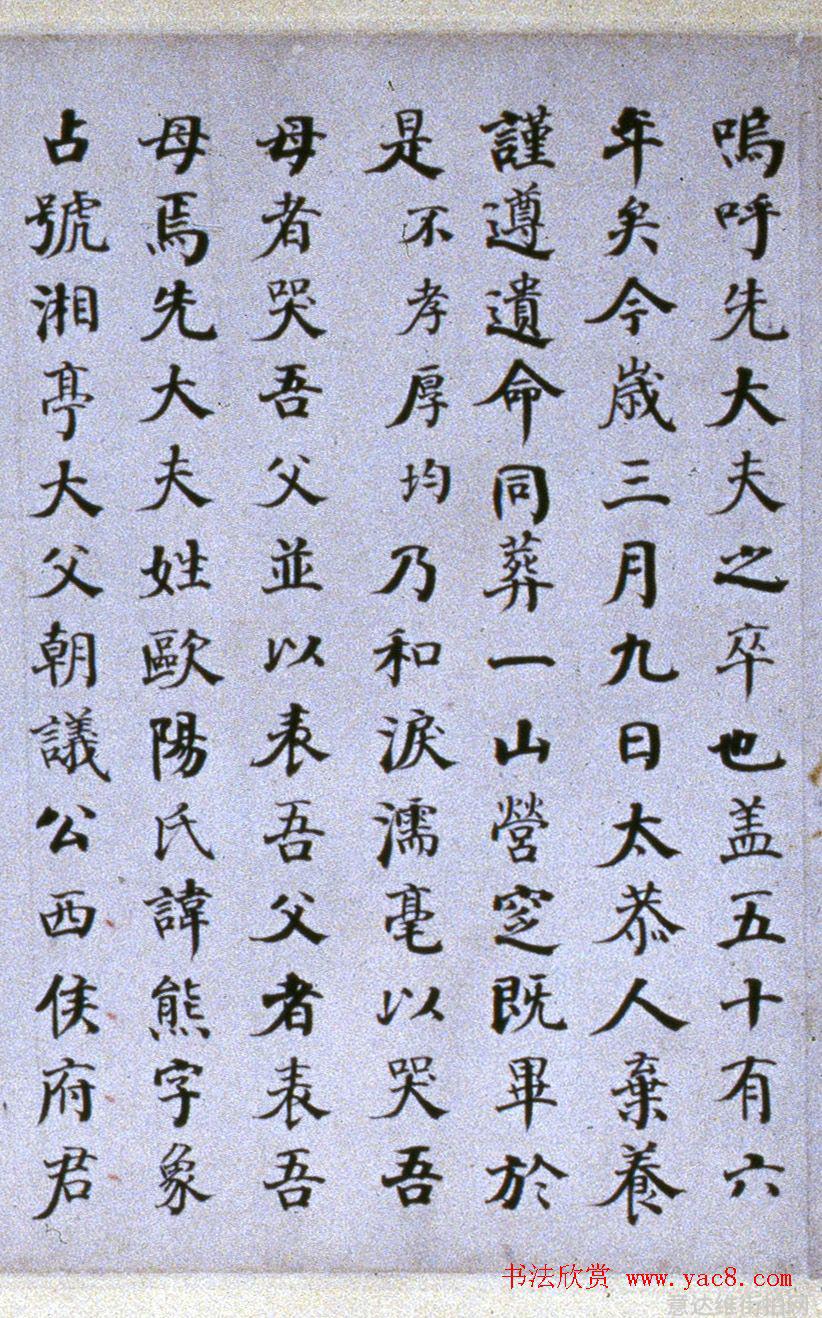 嗚呼先大夫之卒也盖五十有六
年矣今歳三月九日太恭人棄養
謹遵遺命同葬一山營窆既畢於
是不孝厚均乃和淚濡毫以哭吾
母者哭吾父並以表吾父者表吾
母焉先大夫姓歐陽氏諱熊字象
占號湘亭大父朝議公西侯府君
书法欣赏 www.yac8.com
意达维街拍网